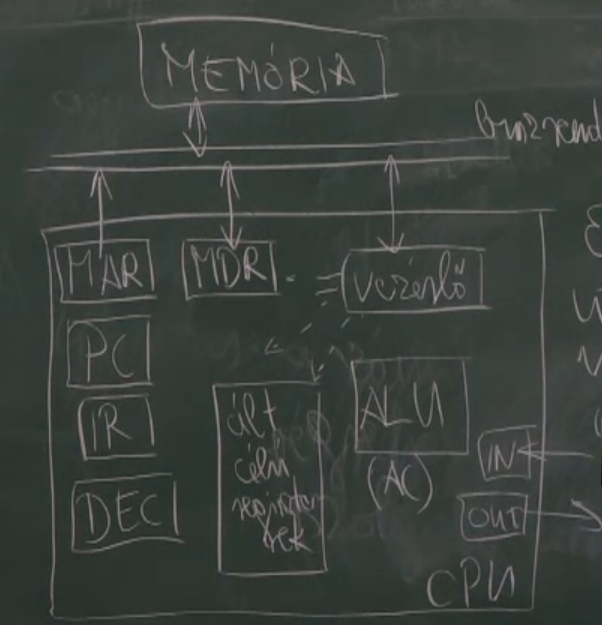 MEMÓRIA
MAR
MDR
vezérlő
PC
IR
DEC
ált
célú
regiszte
rek
ALU
(AC)
IN
OUT
CPU